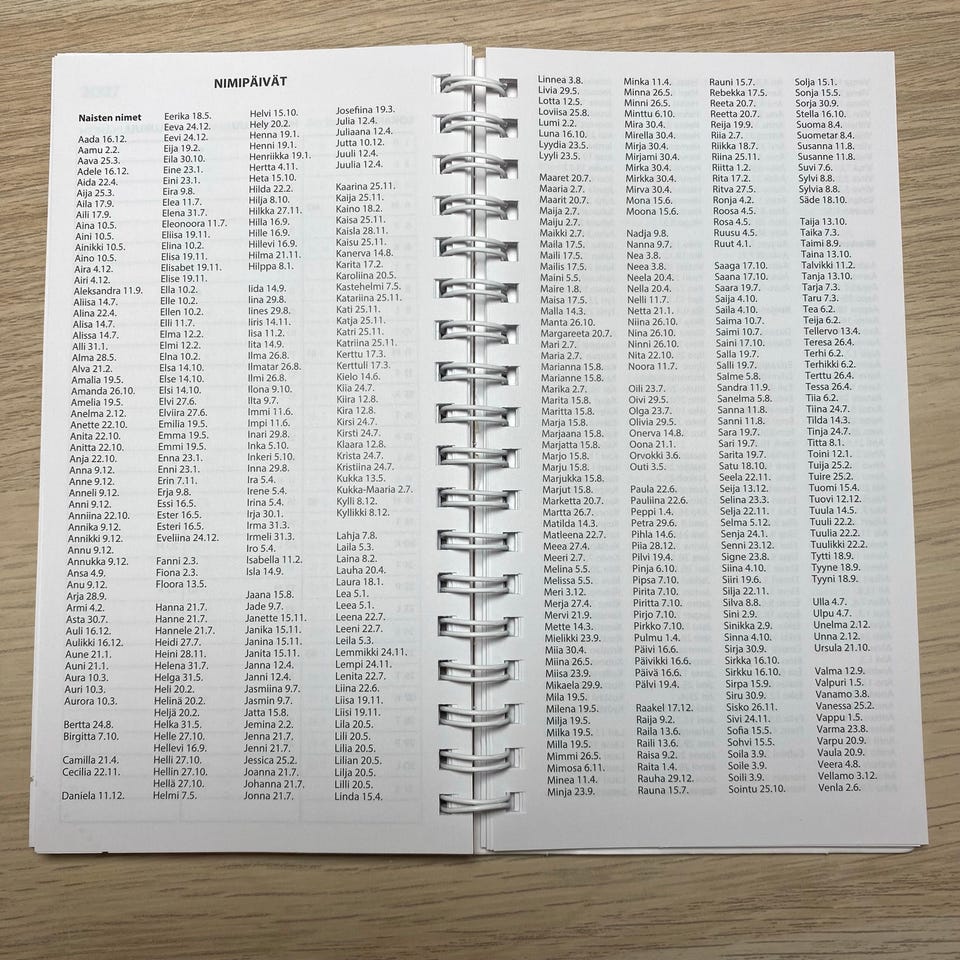 NIMIPÄIVÄT
Naisten nimet
Aada 16.12.
Aamu 2.2.
Aava 25.3.
Adele 16.12.
Aida 22.4.
Aija 25.3.
Aila 17.9.
Aili 17.9.
Aina 10.5.
Aini 10.5.
Ainikki 10.5.
Aino 10.5.
Aira 4.12.
Airi 4.12.
Aleksandra 11.9.
Aliisa 14.7.
Alina 22.4.
Alisa 14.7.
Alissa 14.7.
Alli 31.1.
Alma 28.5.
Alva 21.2.
Amalia 19.5.
Amanda 26.10.
Amelia 19.5.
Anelma 2.12.
Anette 22.10.
Anita 22.10.
Anitta 22.10.
Anja 22.10.
Anna 9.12.
Anne 9.12.
Anneli 9.12.
Anni 9.12.
Anniina 22.10.
Annika 9.12.
Annikki 9.12.
Annu 9.12.
Annukka 9.12.
Ansa 4.9.
Anu 9.12.
Arja 28.9.
Armi 4.2.
Asta 30.7.
Auli 16.12.
Aulikki 16.12.
Aune 21.1.
Auni 21.1.
Aura 10.3.
Auri 10.3.
Aurora 10.3.
Bertta 24.8.
Birgitta 7.10.
Camilla 21.4.
Cecilia 22.11.
Daniela 11.12.
Eerika 18.5.
Eeva 24.12.
Eevi 24.12.
Eija 19.2.
Eila 30.10.
Eine 23.1.
Eini 23.1.
Eira 9.8.
Elea 11.7.
Elena 31.7.
Eleonoora 11.7.
Eliisa 19.11.
Elina 10.2.
Elisa 19.11.
Elisabet 19.11.
Elise 19.11.
Ella 10.2.
Elle 10.2.
Ellen 10.2.
Elli 11.7.
Elma 12.2.
Elmi 12.2.
Elna 10.2.
Elsa 14.10.
Else 14.10.
Elsi 14.10.
Elvi 27.6.
Elviira 27.6.
Emilia 19.5.
Emma 19.5.
Emmi 19.5.
Enna 23.1.
Enni 23.1.
Erin 7.11.
Erja 9.8.
Essi 16.5.
Ester 16.5.
Esteri 16.5.
Eveliina 24.12.
Fanni 2.3.
Fiona 2.3.
Floora 13.5.
Hanna 21.7.
Hanne 21.7.
Hannele 21.7.
Heidi 27.7.
Heini 28.11.
Helena 31.7.
Helga 31.5.
Heli 20.2.
Helinä 20.2.
Heljä 20.2.
Helka 31.5.
Helle 27.10.
Hellevi 16.9.
Helli 27.10.
Hellin 27.10.
Hellä 27.10.
Helmi 7.5.
Helvi 15.10.
Hely 20.2.
Henna 19.1.
Henni 19.1.
Henriikka 19.1.
Hertta 4.11.
Heta 15.10.
Hilda 22.2.
Hilja 8.10.
Hilkka 27.11.
Hilla 16.9.
Hille 16.9.
Hillevi 16.9.
Hilma 21.11.
Hilppa 8.1.
Iida 14.9.
Iina 29.8.
Iines 29.8.
Iiris 14.11.
Iisa 11.2.
Iita 14.9.
Ilma 26.8.
Ilmatar 26.8.
Ilmi 26.8.
Ilona 9.10.
Ilta 9.7.
Immi 11.6.
Impi 11.6.
Inari 29.8.
Inka 5.10.
Inkeri 5.10.
Inna 29.8.
Ira 5.4.
Irene 5.4.
Irina 5.4.
Irja 30.1.
Irma 31.3.
Irmeli 31.3.
Iro 5.4.
Isabella 11.2.
Isla 14.9.
Jaana 15.8.
Jade 9.7.
Janette 15.11.
Janika 15.11.
Janina 15.11.
Janita 15.11.
Janna 12.4.
Janni 12.4.
Jasmiina 9.7.
Jasmin 9.7.
Jatta 15.8.
Jemina 2.2.
Jenna 21.7.
Jenni 21.7.
Jessica 25.2.
Joanna 21.7.
Johanna 21.7.
Jonna 21.7.
Josefiina 19.3.
Julia 12.4.
Juliaana 12.4.
Jutta 10.12.
Juuli 12.4.
Juulia 12.4.
Kaarina 25.11.
Kaija 25.11.
Kaino 18.2.
Kaisa 25.11.
Kaisla 28.11.
Kaisu 25.11.
Kanerva 14.8.
Karita 17.2.
Karoliina 20.5.
Kastehelmi 7.5.
Katariina 25.11.
Kati 25.11.
Katja 25.11.
Katri 25.11.
Katriina 25.11.
Kerttu 17.3.
Kerttuli 17.3.
Kielo 14.6.
Kiia 24.7.
Kiira 12.8.
Kira 12.8.
Kirsi 24.7.
Kirsti 24.7.
Klaara 12.8.
Krista 24.7.
Kristiina 24.7.
Kukka 13.5.
Kukka-Maaria 2.7.
Kylli 8.12.
Kyllikki 8.12.
Lahja 7.8.
Laila 5.3.
Laina 8.2.
Lauha 20.4.
Laura 18.1.
Lea 5.1.
Leea 5.1.
Leena 22.7.
Leeni 22.7.
Leila 5.3.
Lemmikki 24.11.
Lempi 24.11.
Lenita 22.7.
Liina 22.6.
Liisa 19.11.
Liisi 19.11.
Lila 20.5.
Lili 20.5.
Lilia 20.5.
Lilian 20.5.
Lilja 20.5.
Lilli 20.5.
Linda 15.4.
Linnea 3.8.
Livia 29.5.
Lotta 12.5.
Loviisa 25.8.
Lumi 2.2.
Luna 16.10.
Lyydia 23.5.
Lyyli 23.5.
Maaret 20.7.
Maaria 2.7.
Maarit 20.7.
Maija 2.7.
Maiju 2.7.
Maikki 2.7.
Maila 17.5.
Maili 17.5.
Mailis 17.5.
Maini 5.5.
Maire 1.8.
Maisa 17.5.
Malla 14.3.
Manta 26.10.
Margareeta 20.7.
Mari 2.7.
Maria 2.7.
Marianna 15.8.
Marianne 15.8.
Marika 2.7.
Marita 15.8.
Maritta 15.8.
Marja 15.8.
Marjaana 15.8.
Marjatta 15.8.
Marjo 15.8.
Marju 15.8.
Marjukka 15.8.
Marjut 15.8.
Marketta 20.7.
Martta 26.7.
Matilda 14.3.
Matleena 22.7.
Meea 27.4.
Meeri 2.7.
Melina 5.5.
Melissa 5.5.
Meri 3.12.
Merja 27.4.
Mervi 21.9.
Mette 14.3.
Mielikki 23.9.
Miia 30.4.
Miina 26.5.
Miisa 23.9.
Mikaela 29.9.
Mila 19.5.
Milena 19.5.
Milja 19.5.
Milka 19.5.
Milla 19.5.
Mimmi 26.5.
Mimosa 6.11.
Minea 11.4.
Minja 23.9.
Minka 11.4.
Minna 26.5.
Minni 26.5.
Minttu 6.10.
Mira 30.4.
Mirella 30.4.
Mirja 30.4.
Mirjami 30.4.
Mirka 30.4.
Mirkka 30.4.
Mirva 30.4.
Mona 15.6.
Moona 15.6.
Nadja 9.8.
Nanna 9.7.
Nea 3.8.
Neea 3.8.
Neela 20.4.
Nella 20.4.
Nelli 11.7.
Netta 21.1.
Niina 26.10.
Nina 26.10.
Ninni 26.10.
Nita 22.10.
Noora 11.7.
Oili 23.7.
Oivi 29.5.
Olga 23.7.
Olivia 29.5.
Onerva 14.8.
Oona 21.1.
Orvokki 3.6.
Outi 3.5.
Paula 22.6.
Pauliina 22.6.
Peppi 1.4.
Petra 29.6.
Pihla 14.6.
Piia 28.12.
Pilvi 19.4.
Pinja 6.10.
Pipsa 7.10.
Pirita 7.10.
Piritta 7.10.
Pirjo 7.10.
Pirkko 7.10.
Pulmu 1.4.
Päivi 16.6.
Päivikki 16.6.
Päivä 16.6.
Pälvi 19.4.
Raakel 17.12.
Raija 9.2.
Raila 13.6.
Raili 13.6.
Raisa 9.2.
Raita 1.4.
Rauha 29.12.
Rauna 15.7.
Rauni 15.7.
Rebekka 17.5.
Reeta 20.7.
Reetta 20.7.
Reija 19.9.
Riia 2.7.
Riikka 18.7.
Riina 25.11.
Riitta 1.2.
Rita 17.2.
Ritva 27.5.
Ronja 4.2.
Roosa 4.5.
Rosa 4.5.
Ruusu 4.5.
Ruut 4.1.
Saaga 17.10.
Saana 17.10.
Saara 19.7.
Saija 4.10.
Saila 4.10.
Saima 10.7.
Saimi 10.7.
Saini 17.10.
Salla 19.7.
Salli 19.7.
Salme 5.8.
Sandra 11.9.
Sanelma 5.8.
Sanna 11.8.
Sanni 11.8.
Sara 19.7.
Sari 19.7.
Sarita 19.7.
Satu 18.10.
Seela 22.11.
Seija 13.12.
Selina 23.3.
Selja 22.11.
Selma 5.12.
Senja 24.1.
Senni 23.12.
Signe 23.8.
Siina 4.10.
Siiri 19.6.
Silja 22.11.
Silva 8.8.
Sini 2.9.
Sinikka 2.9.
Sinna 4.10.
Sirja 30.9.
Sirkka 16.10.
Sirkku 16.10.
Sirpa 15.9.
Siru 30.9.
Sisko 26.11.
Sivi 24.11.
Sofia 15.5.
Sohvi 15.5.
Soila 3.9.
Soile 3.9.
Soili 3.9.
Sointu 25.10.
Solja 15.1.
Sonja 15.5.
Sorja 30.9.
Stella 16.10.
Suoma 8.4.
Suometar 8.4.
Susanna 11.8.
Susanne 11.8.
Suvi 7.6.
Sylvi 8.8.
Sylvia 8.8.
Säde 18.10.
Taija 13.10.
Taika 7.3.
Taimi 8.9.
Taina 13.10.
Talvikki 11.2.
Tanja 13.10.
Tarja 7.3.
Taru 7.3.
Tea 6.2.
Teija 6.2.
Tellervo 13.4.
Teresa 26.4.
Terhi 6.2.
Terhikki 6.2.
Terttu 26.4.
Tessa 26.4.
Tiia 6.2.
Tiina 24.7.
Tilda 14.3.
Tinja 24.7.
Titta 8.1.
Toini 12.1.
Tuija 25.2.
Tuire 25.2.
Tuomi 15.4.
Tuovi 12.12.
Tuula 14.5.
Tuuli 22.2.
Tuulia 22.2.
Tuulikki 22.2.
Tytti 18.9.
Tyyne 18.9.
Tyyni 18.9.
Ulla 4.7.
Ulpu 4.7.
Unelma 2.12.
Unna 2.12.
Ursula 21.10.
Valma 12.9.
Valpuri 1.5.
Vanamo 3.8.
Vanessa 25.2.
Vappu 1.5.
Varma 23.8.
Varpu 20.9.
Vaula 20.9.
Veera 4.8.
Vellamo 3.12.
Venla 2.6.